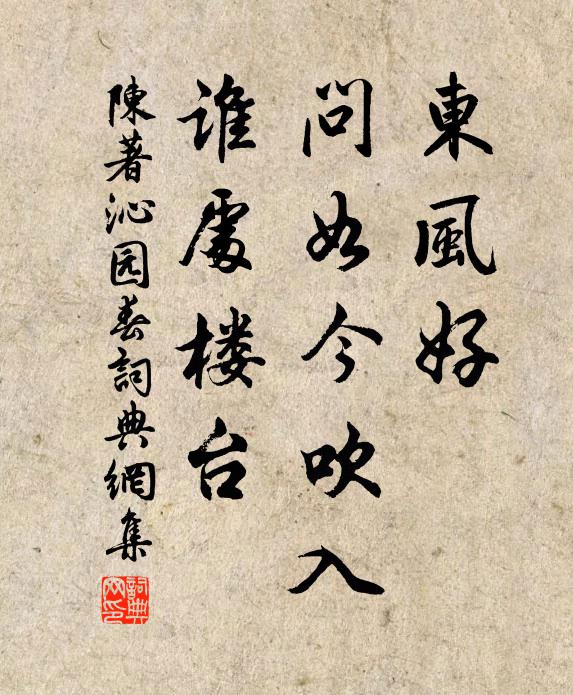 東風好
問如今吹入
誰處楼台
陳著沁园春詞典網集
詞典网印